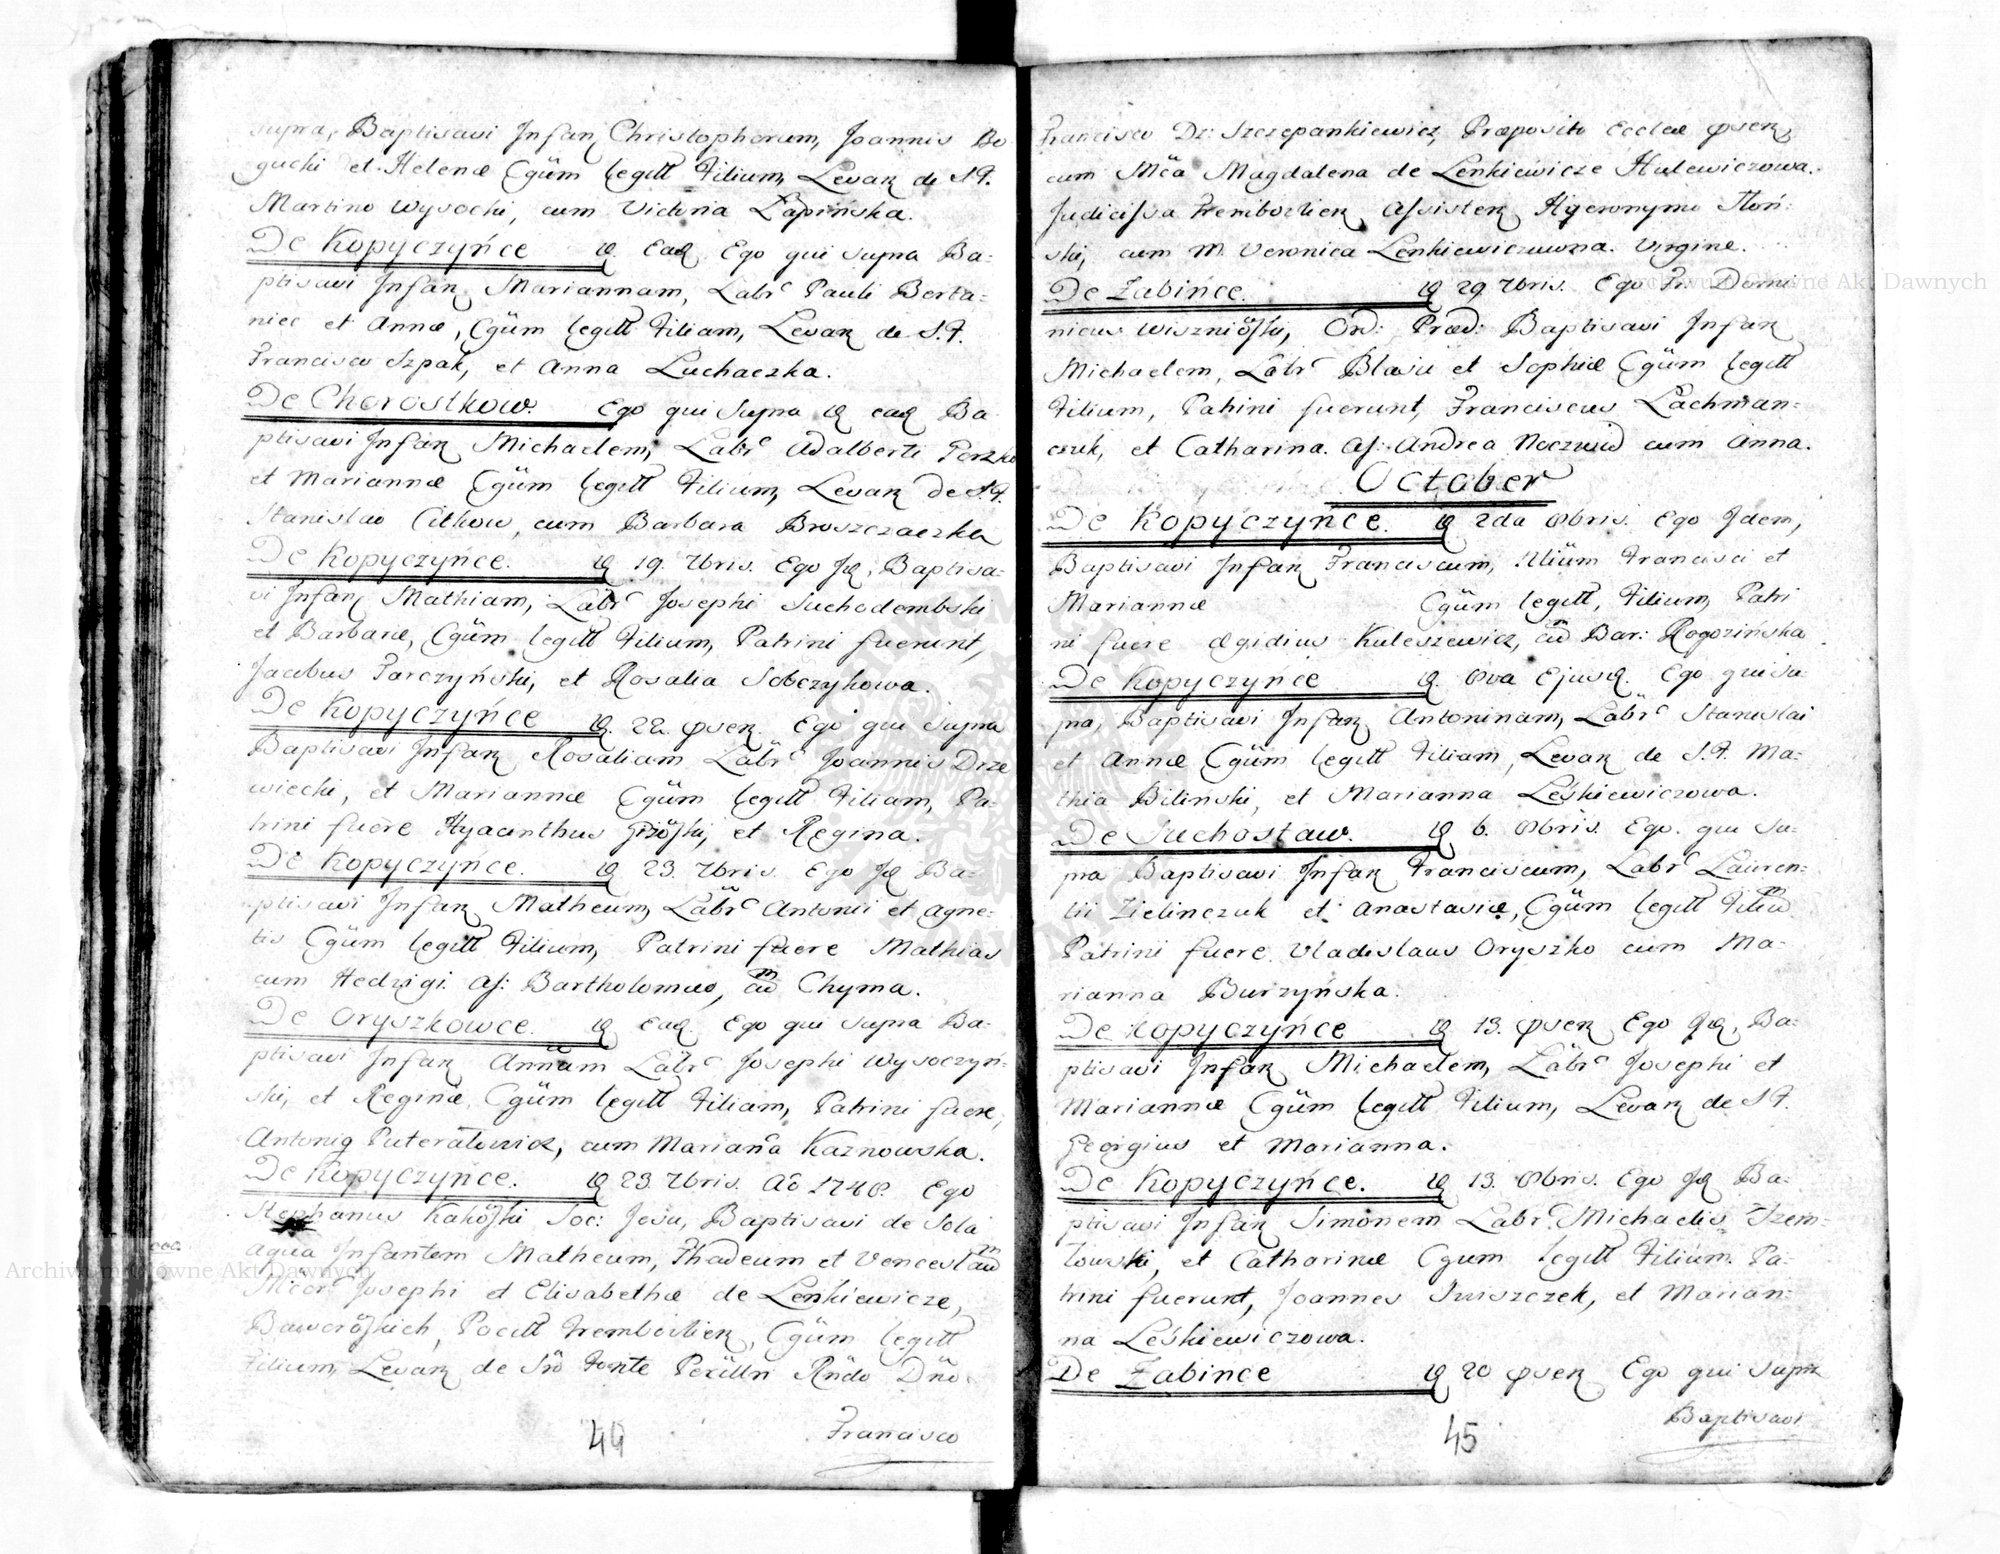 supra, Baptisavi Infan Christophorum, Joannis Bo
gucki et Helenæ Cgüm legitt Filium, Levan de S.F.
Martino Wysocki, cum Victoria Łapińska.
De Kopyczyńce D. Ead. Ego qui supra Ba-
ptisavi Infan Mariannam, Labr Pauli Berta-
niec et Annæ, Cgüm legitt Filiam, Levan de S.F.
Francisco Szpak, et Anna Luchaczka.
De Chorostkow. Ego qui Supra D ead Ba
ptisavi Infan Michaelem, Labr Adalberti Perzko
et Mariannæ Cgüm legitt Filium, Levan de S.F.
Stanislao Citkow, cum Barbara Broszczaczka
De Kopyczyńce. D 19. 7bris. Ego Jd, Baptisa-
vi Infan Mathiam, Labr Josephi Suchodembski
et Barbaræ, Cgüm legitt Filium, Patrini fuerunt,
Jacobus Parczyński, et Rosalia Sobczykowa.
De Kopyczyńce D. 22. psen. Ego qui supra
Baptisavi Infan Rosaliam Labr Joannis Drze
wiecki, et Mariannæ Cgüm legitt Filiam, Pa-
trini fuere Hyacinthus et Regina.
De Kopyczyńce. D 23. 7bris. Ego Jd Ba-
ptisavi Infan Matheum, Labr Antonii et Agne-
tis Cgüm legitt Filium, Patrini fuere Mathias
cum Hedvigi. As: Bartholomæo, cü Chyma.
De Oryszkowce. D Ead. Ego qui supra Ba-
ptisavi Infan Annam Labr Josephi Wysoczyń-
ski, et Reginæ, Cgüm legitt Filiam, Patrini fuere,
Antonig Puteratowicz, cum Mariana Kaznowska.
De Kopyczyńce. D 23 7bris. Aö 1748. Ego
Stephanus Soc: Jesu, Baptisavi de Sola
aqua Infantem Matheum, Thadeum et Venceslaü
Josephi et Elisabethæ de Lenkiewicze,
Pocill Trembovlien, Cgüm legitt
Filium, Levan de Sro Fonte Perilln Rndo Dño.
Francisco
49
Francisco Dr: Szczepankiewicz, Præposito Ecclæ psen,
cum Mca Magdalena de Lenkiewicze Hulewiczowa.
Judicissa Trembovlien, Assisten, Hyeronymo Płoń-
ski, cum M. Veronica Lenkiewiczuwna. Virgine.
De Żabińce. D 29 7bris. Ego Fr. Domi
nicus Ord: Præd: Baptisavi Infan
Michaelem, Labr Blasii et Sophiæ Cgüm legitt
Filium, Patrini fuerunt, Franciscus Lachman-
czuk, et Catharina. As: Andrea Noczwid cum Anna.
October
De Kopyczyńce. D 2da 8bris. Ego Idem,
Baptisavi Infan Franciscum, Francisci et
Mariannæ Cgüm legitt, Filium, Patri
ni fuere Ægidius Kuleszewicz, cü Bar: Rogozińska
De Kopyczyńce D. 8va Ejusd. Ego qui su
pra, Baptisavi Infan Antoninam, Labr Stanislai
et Annæ Cgüm legitt Filiam, Levan de S.F. Ma-
thia Biliński, et Marianna Leśkiewiczowa.
De Suchostaw. D 6. 8bris. Ego. qui su-
pra Baptisavi Infan Franciscum, Labr Lauren-
tii Zielinczuk et Anastasiæ, Cgüm legitt Filiü
Patrini fuere Vladislaus Oryszko cum Ma-
rianna Burzyńska.
De Kopyczyńce D. 13. psen Ego Jd, Ba-
ptisavi Infan Michaelem, Labr Josephi et
Mariannæ Cgüm legitt Filium, Levan de S F.
Georgius et Marianna.
De Kopyczyńce. D 13. 8bris. Ego Jd Ba-
ptisavi Infan Simonem Labr Michaelis Szem-
towski, et Catharinæ Cgum legitt Filium. Pa-
trini fuerunt, Joannes Iwiszczek, et Marian-
na Leśkiewiczowa.
De Żabince D 20 psen Ego qui supra
Baptisavi
45
Archiwum Główne Akt Dawnych
Archiwum Główne Akt Dawnych